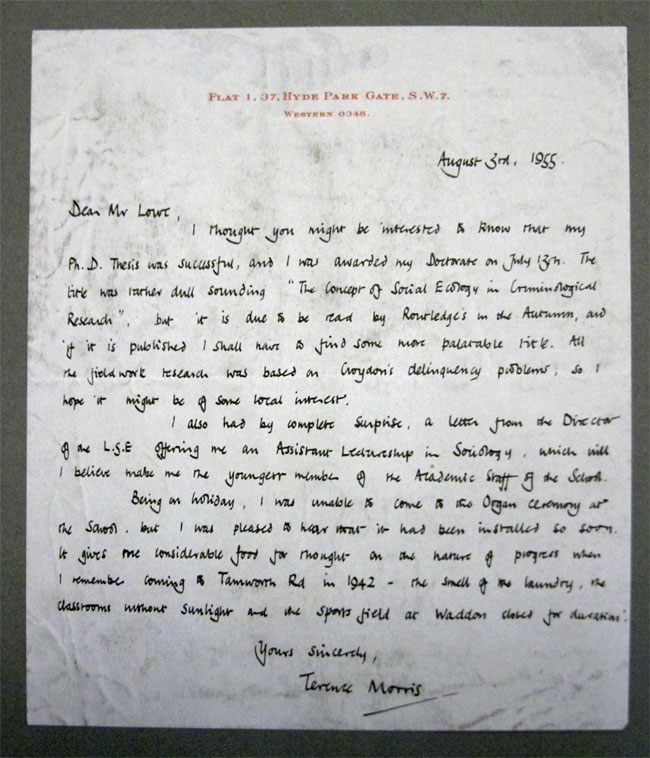 FLAT 1, 37, HYDE PARK GATE, S.W.7.
WESTERN 0348.
August 3rd, 1955.
Dear Mr Lowe,
I thought you might be interested to know that my
Ph.D. Thesis was successful, and I was awarded my Doctorate on July 13th. The
title was rather dull sounding "The Concept of Social Ecology in Criminological
Research", but it is due to be read by Routledge's in the Autumn, and
if it is published I shall have to find some more palatable title. All
the fieldwork research was based on Croydon's delinquency problems, so I
hope it might be of some local interest.
I also had by complete surprise, a letter from the Director
of the L.S.E offering me an Assistant Lectureship in Sociology, which will
I believe make me the youngest member of the Academic Staff of the School.
Being on holiday, I was unable to come to the Organ ceremony at
the School, but I was pleased to hear that it had been installed so soon.
It gives one considerable food for thought on the nature of progress when
I remember coming to Tamworth Rd in 1942 - the smell of the laundry, the
classrooms without sunlight and the sports field at Waddon closed for duration.
Yours sincerely,
Terence Morris